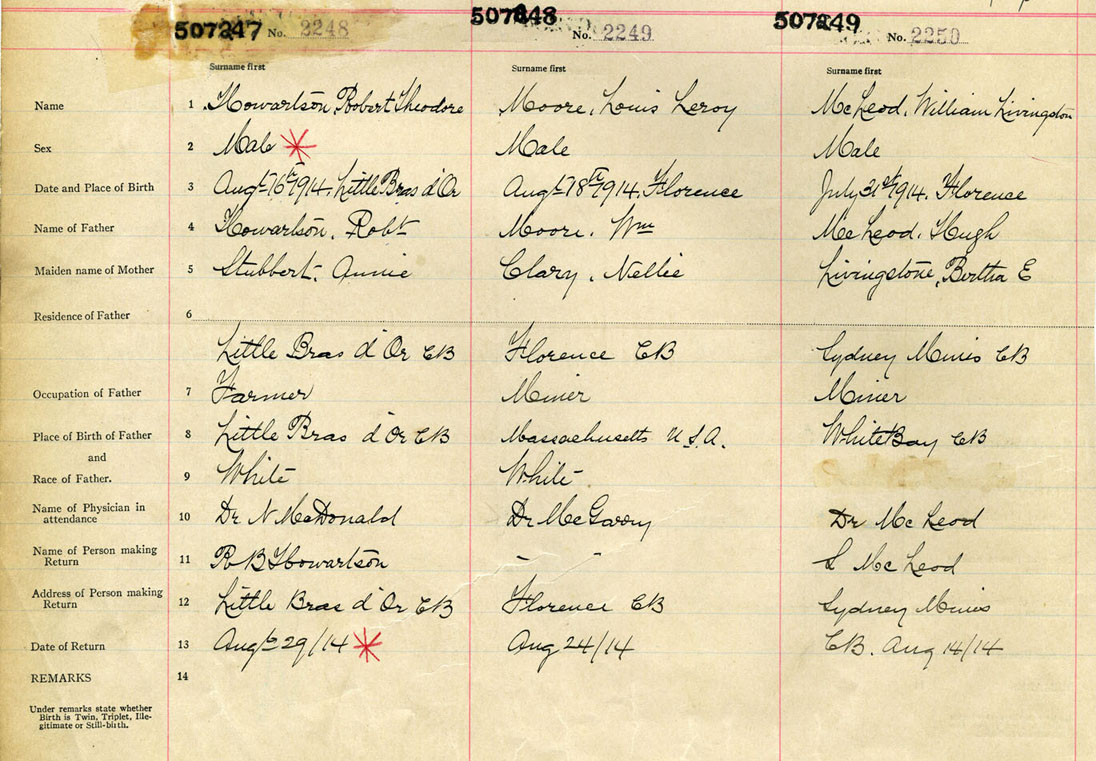 507247 No. 2248 507248 No. 2249 507249 No. 2250
Surname first Surname first Surname first
Name 1 Howartson, Robert Theodore Moore, Louis Leroy McLeod, William Livingston
Sex 2 Male Male Male
Date and Place of Birth 3 Augt 16th 1914. Little Bras d'Or Augt 18th 1914. Florence July 31st 1914. Florence
Name of Father 4 Howartson, Robt Moore, Wm McLeod, Hugh
Maiden name of Mother 5 Stubbert, Annie Clary, Nellie Livingstone, Bertha E
Residence of Father 6
Little Bras d'Or CB Florence CB Sydney Mines CB
Occupation of Father 7 Farmer Miner Miner
Place of Birth of Father 8 Little Bras d'Or CB Massachusetts U.S.A. White Bay CB
and
Race of Father. 9 White White
Name of Physician in
attendance 10 Dr N McDonald Dr McGarry Dr McLeod
Name of Person making
Return 11 R B Howartson - - S McLeod
Address of Person making
Return 12 Little Bras d'Or CB Florence CB Sydney Mines
Date of Return 13 Augt 29/14 Aug 24/14 CB. Aug 14/14
REMARKS 14
Under remarks state whether
Birth is Twin, Triplet, Ille-
gitimate or Still-birth.